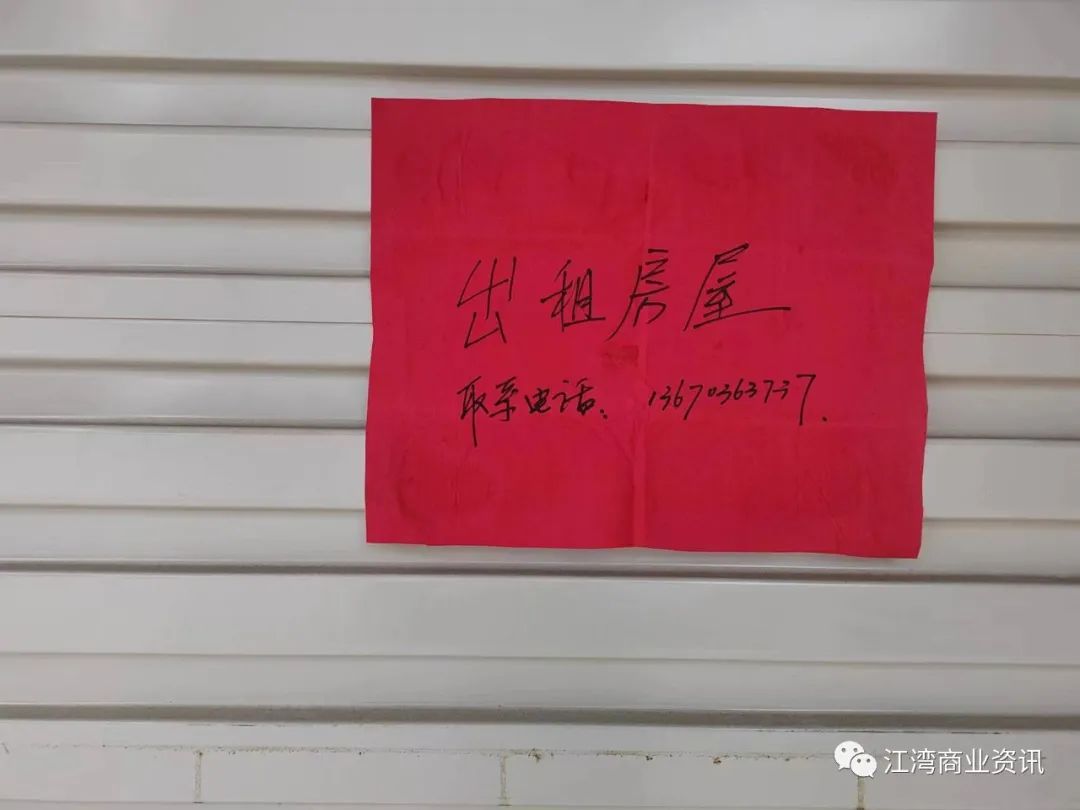 出租房屋
取系电话: 13670363737.
江湾商业资讯